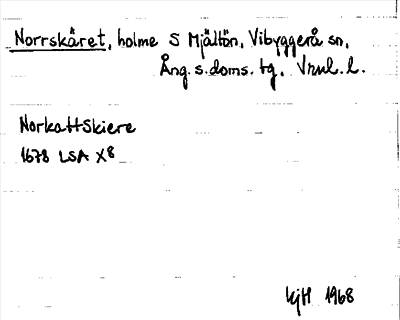 Norrskäret, holme S Mjältön, Vibyggerå sn,
Ång. s. doms. tg, Vnrl. l.
Norkattskiere
1678 LSA X8
KjH 1968